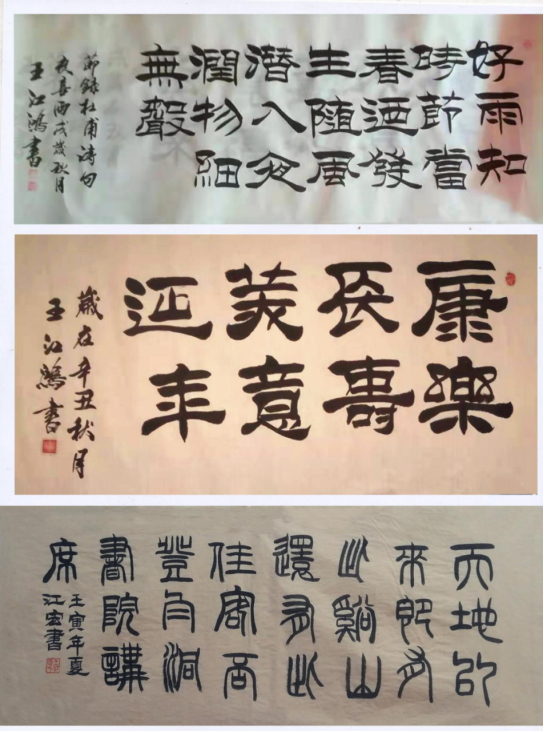 好雨知
時節當
春迺發
生随風
潛入夜
潤物細
無聲
節錄杜甫诗句
夜喜雨 秋月
王江鴻書
康樂
長壽
美意
延年
歲在辛丑秋月
王江鴻書
天地以
來即有
此谿山
還有此
佳客否
登白洞
書院講
席
壬寅年夏
江宏書